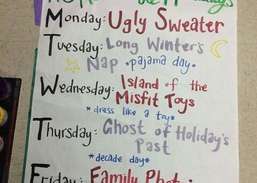 Monday: Ugly Sweater
Tuesday: Long Winter's
Nap *pajama day*
Wednesday: Island of the
Misfit Toys
*dress like a toy*
Thursday: Ghost of Holiday's
Past
*decade day*
Friday: Family